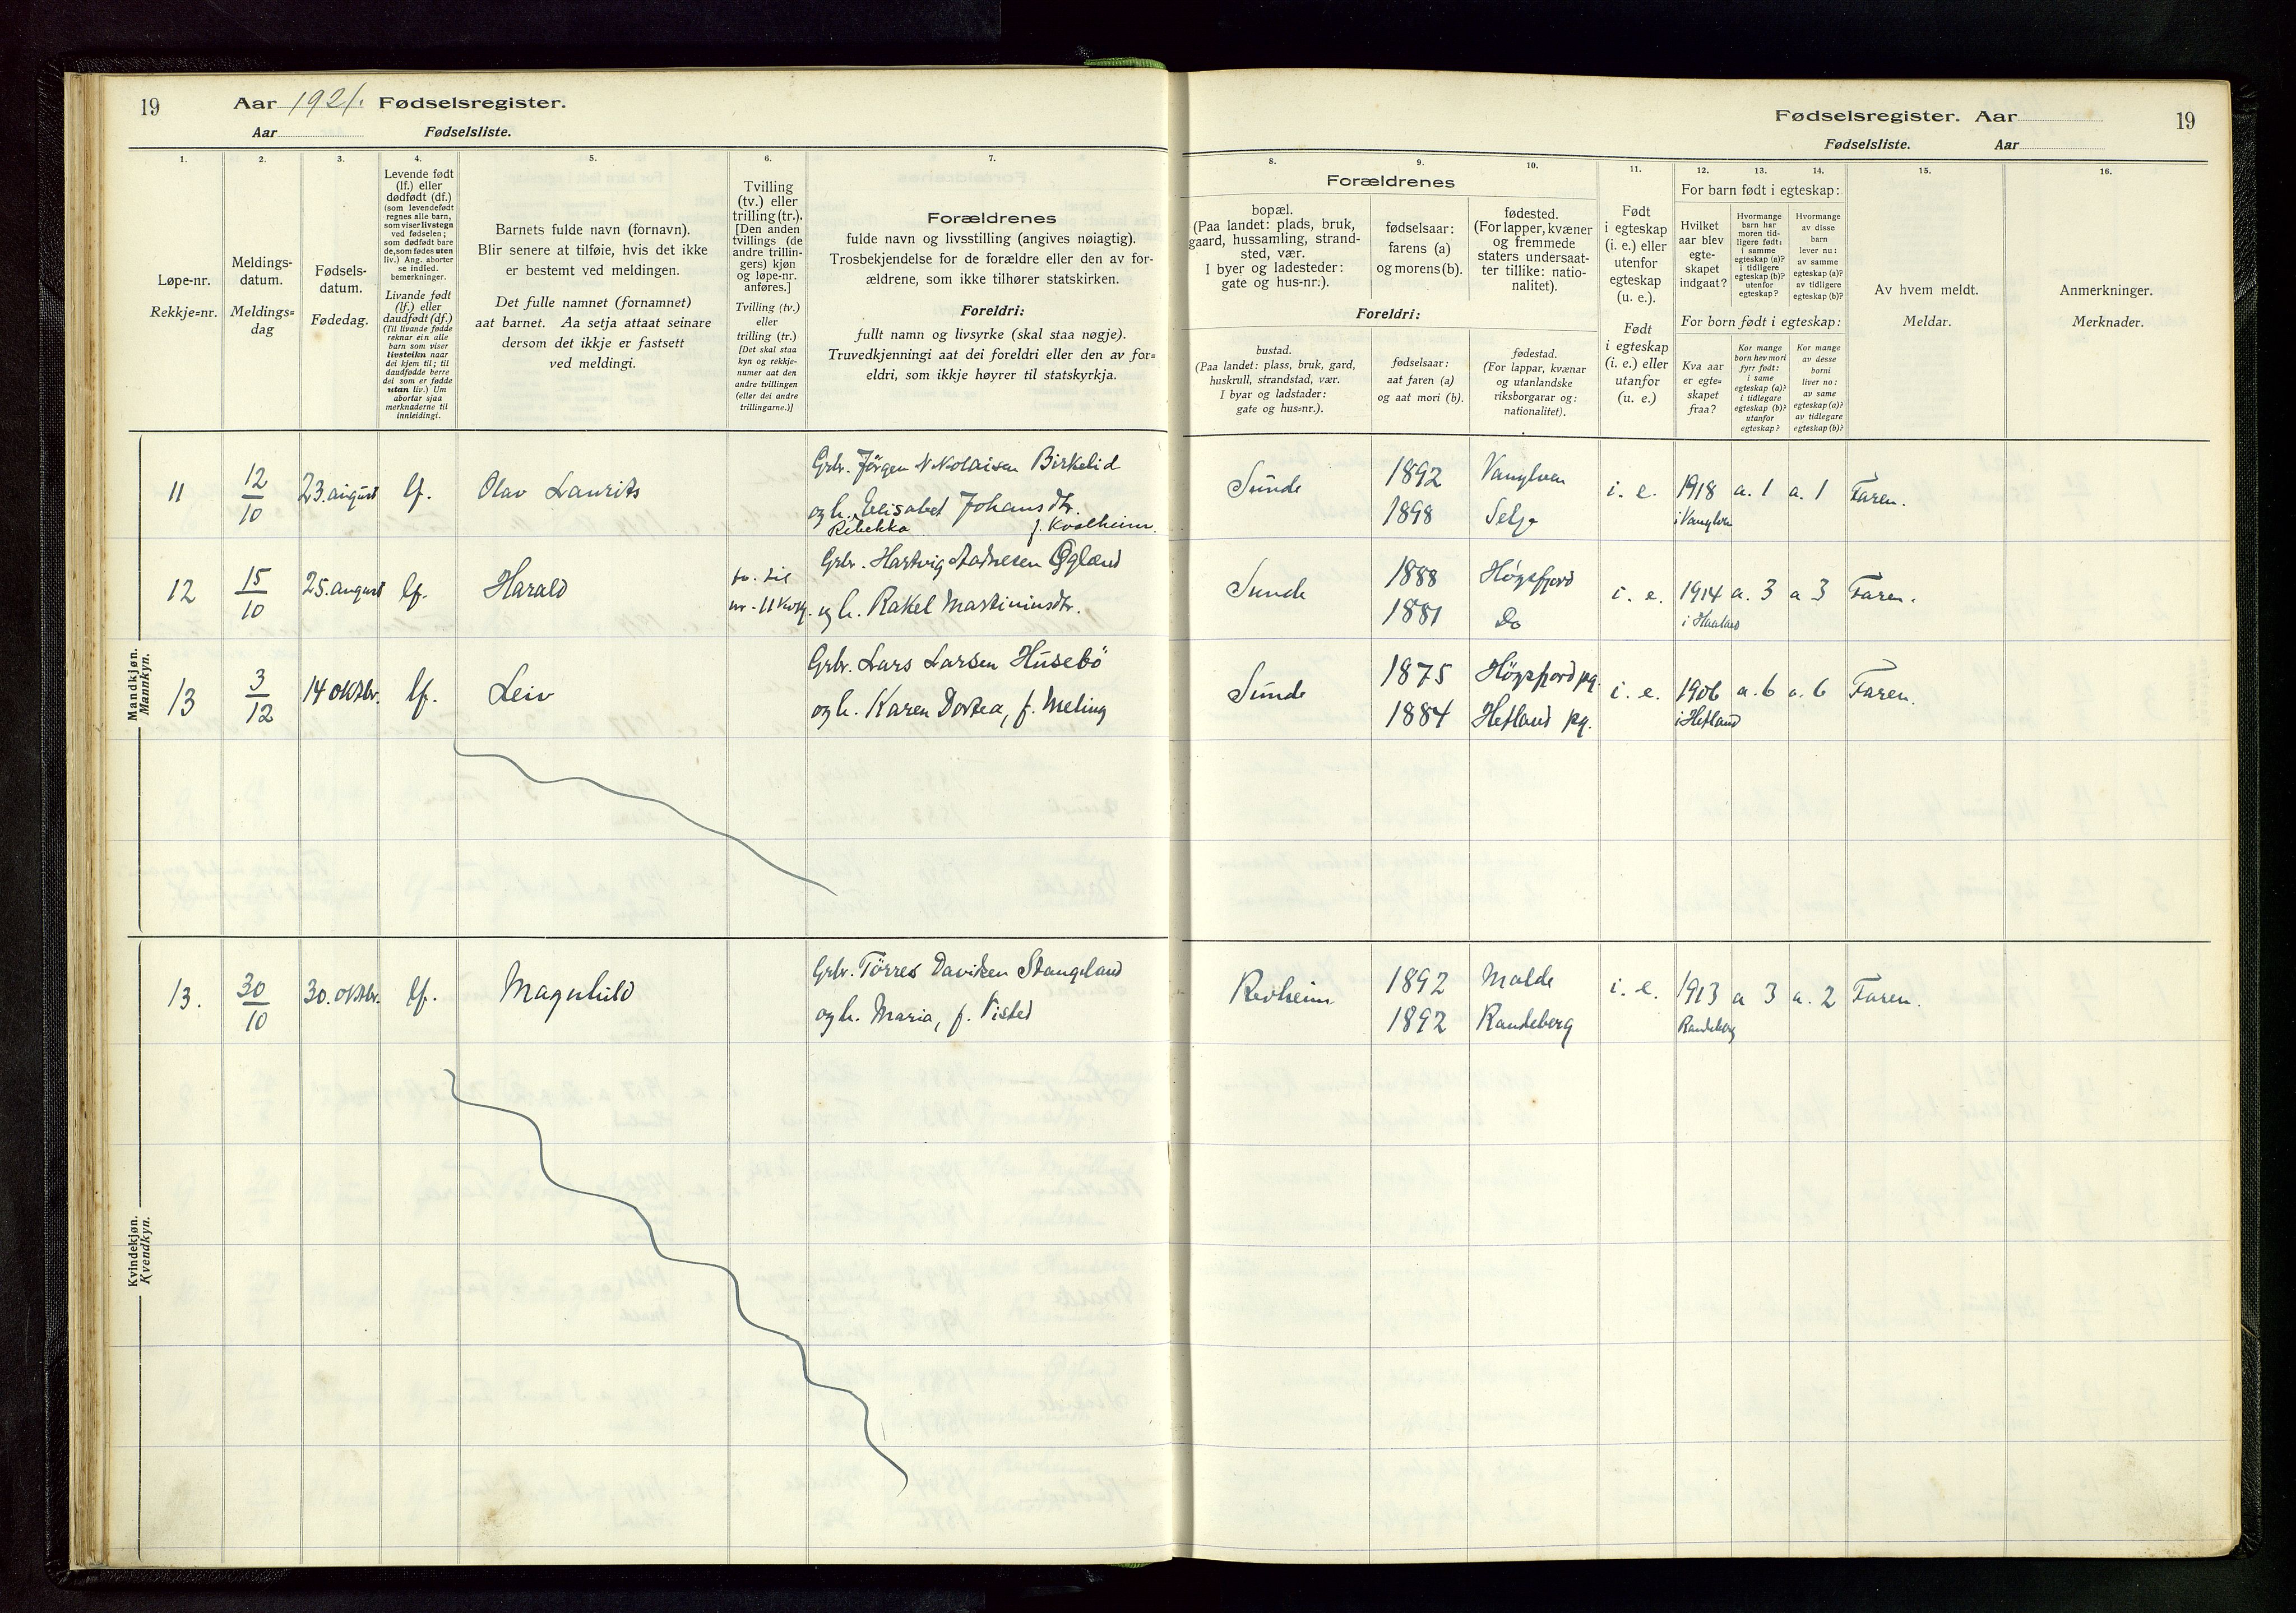 19
Aar 1921. Fødselsregister.
Aar Fødselsliste.
Fødselsregister. Aar
Fødselsliste. Aar
19
1.
Løpe-nr.
Rekkje=nr.
2.
Meldings-
datum.
Meldings=
dag
3.
Fødsels-
datum.
Fødedag.
4.
Levende født
(lf.) eller
dødfødt (df.)
(som levendefødt
regnes alle barn,
som viser livstegn
ved fødselen;
som dødfødt bare
de, som fødes uten
liv.) Ang. aborter
se indled.
bemerkninger.
Livande født
(lf.) eller
daudfødt (df.)
(Til livande fødde
reknar ein alle
barn som viser
livsteikn naar
dei kjem til; til
daudfødde berre
dei som er fødde
utan liv.) Um
abortar sjaa
merknaderne til
innleidingi.
5.
Barnets fulde navn (fornavn).
Blir senere at tilføie, hvis det ikke
er bestemt ved meldingen.
Det fulle namnet (fornamnet)
aat barnet. Aa setja attaat seinare
dersom det ikkje er fastsett
ved meldingi.
6.
Tvilling
(tv.) eller
trilling (tr.).
[Den anden
tvillings (de
andre trillin-
gers) kjøn
og løpe-nr.
anføres.]
Tvilling (tv.)
eller
trilling (tr.)
[Det skal staa
kyn og rekkje-
numer aat den
andre tvillingen
(eller dei andre
trillingarne.)]
7.
Forældrenes
fulde navn og livsstilling (angives nøiagtig).
Trosbekjendelse for de forældre eller den av for-
ældrene, som ikke tilhører statskirken.
Foreldri:
fullt namn og livsyrke (skal staa nøgje).
Truvedkjenningi aat dei foreldri eller den av for=
eldri, som ikkje høyrer til statskyrkja.
8.
Forældrenes
bopæl.
(Paa landet: plads, bruk,
gaard, hussamling, strand-
sted, vær.
I byer og ladesteder:
gate og hus-nr.).
Foreldri:
bustad.
(Paa landet: plass, bruk, gard,
huskrull, strandstad, vær.
I byar og ladstader:
gate og hus=nr.).
9.
fødselsaar:
farens (a)
og morens (b).
fødselsaar:
aat faren (a)
og aat mori (b).
10.
fødested.
(For lapper, kvæner
og fremmede
staters undersaat-
ter tillike: natio-
nalitet).
fødestad.
(For lappar, kvænar
og utanlandske
riksborgarar og:
nationalitet).
11.
Født
i egteskap
(i. e.) eller
utenfor
egteskap
(u. e.).
Født
i egteskap
(i. e.) eller
utanfor
(u. e.)
12.
For barn født i egteskap:
Hvilket
aar blev
egte-
skapet
indgaat?
For born født i egteskap:
Kva aar
er egte=
skapet
fraa?
13.
Hvormange
barn har
moren tid-
ligere født:
i samme
egteskap (a)?
i tidligere
egteskap (b)?
utenfor
egteskap?
Kor mange
born hev mori
fyrr født:
i same
egteskap (a)?
i tidlegare
egteskap (b)?
utanfor
egteskap?
14.
Hvormange
av disse
barn
lever nu:
av samme
egteskap (a)?
av tidligere
egteskap (b)?
Kor mange
av desse
borni
liver no:
av same
egteskap (a)?
av tidlegare
egteskap (b)?
15.
Av hvem meldt.
Meldar.
16.
Anmerkninger.
Merknader.
Mandkjøn.
Mannkyn.
11 12/10 23. august lf. Olav Laurits Grbr. Jørgen Nikolaisen Birkelid Sunde 1892 Vanylven i. e. 1918 a. 1 a. 1 Faren.
og h. Elisabet Johansdtr. 1898 Selje i Vanylven
Rebekka f. Kvalheim.
12 15/10 25. august lf. Harald tv. til Grbr. Hartvig Aadnesen Øgland Sunde 1888 Høgsfjord i. e. 1914 a. 3 a 3 Faren.
nr. 11 Kvkj. og h. Rakel Martiniusdtr. 1881 Do i Haaland
13 3/12 14 oktbr. lf. Leiv Grbr. Lars Larsen Husebö Sunde 1875 Högsfjord pg. i. e. 1906 a. 6 a. 6 Faren.
og h. Karen Dortea, f. Meling 1884 Hetland pg. i Hetland
Kvindekjøn.
Kvendkyn.
13. 30/10 30. oktbr. lf. Magnhild Grbr. Törres Davidsen Stangeland Revheim 1892 Malde i. e. 1913 a 3 a. 2 Faren.
og h. Maria, f. Visted 1892 Randeberg Randeberg